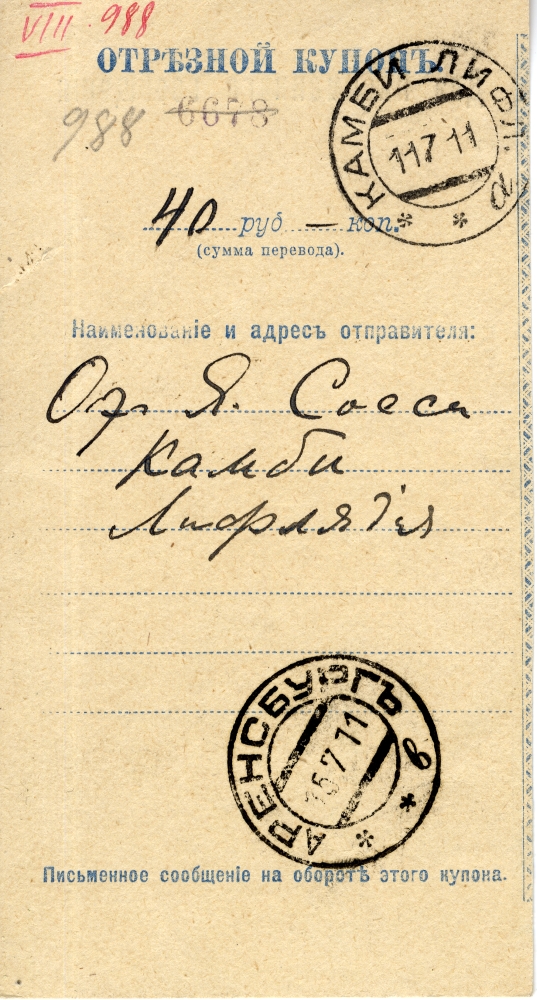 VIII. 988
ОТРѢЗНОЙ КУПОНЪ.
988
6678
КАМБИ ЛИФЛ. а
11 7 11
40 руб — коп.
(сумма перевода).
Наименованіе и адресъ отправителя:
От Я. Соеса
Камби
Лифляндія
АРЕНСБУРГЪ в
15 7 11
Письменное сообщеніе на оборотѣ этого купона.